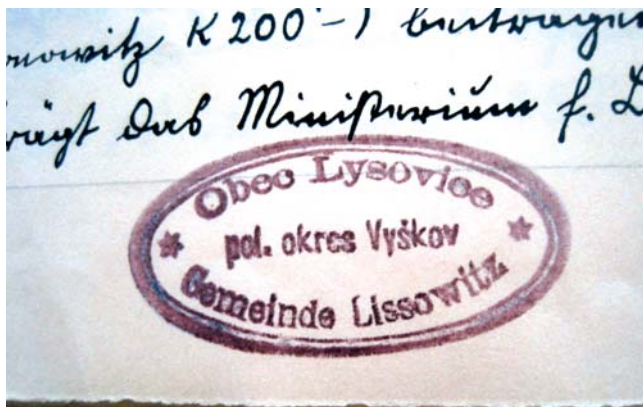 K 200·-) beitragen
trägt das Ministerium f.
Obec Lysovice
pol. okres Vyškov
Gemeinde Lissowitz